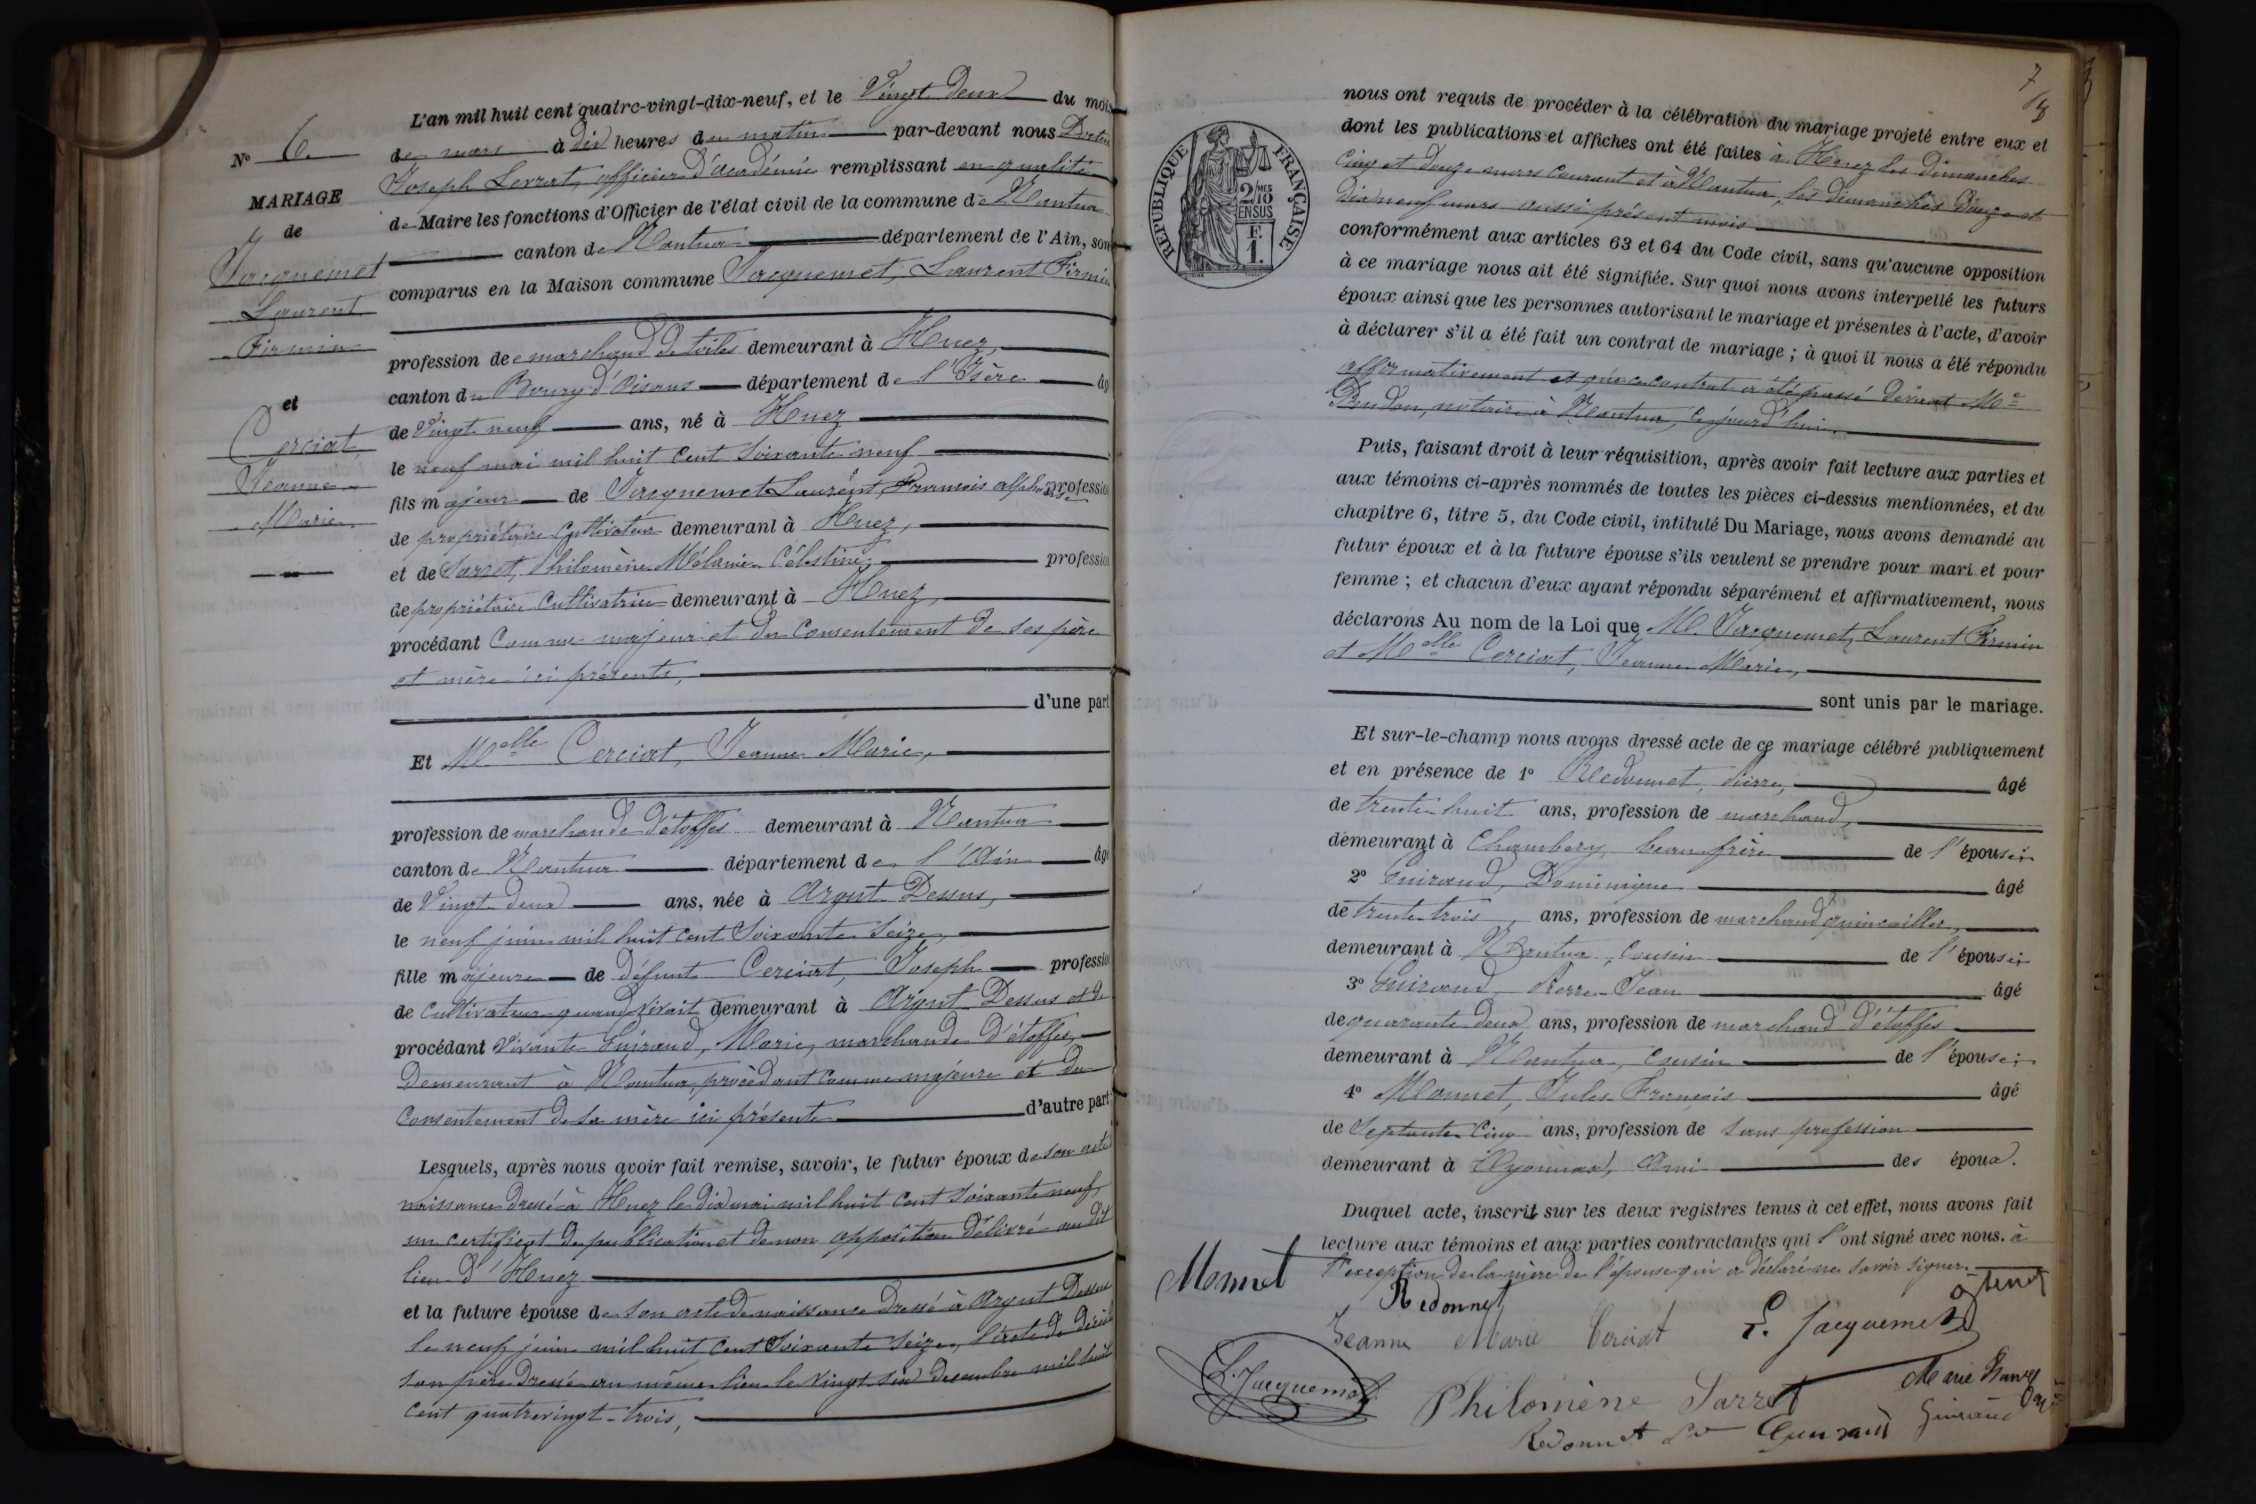 L'an mil huit cent quatre-vingt-dix-neuf, et le Vingt Deux du mois
de mars à dix heures du matin par-devant nous Docteur
Joseph Levrat, officier d'académie remplissant en qualité
de Maire les fonctions d'Officier de l'état civil de la commune de Nantua
canton de Nantua département de l'Ain, sont
comparus en la Maison commune Jacquemet, Laurent Firmin
profession de marchand de toiles demeurant à Huez,
canton du Bourg d'Oisans département de l'Isère âgé
de Vingt neuf ans, né à Huez
le neuf mai mil huit cent soixante neuf
fils majeur de Jacquemet Laurent, François alphonse profession
de propriétaire Cultivateur demeurant à Huez,
et de Sarret, Philomène Mélanie Célestine, profession
de propriétaire Cultivatrice demeurant à Huez,
procédant Comme majeur et du Consentement de ses père
et mère ici présents,
d'une part
Et Melle Cerciat, Jeanne Marie,
profession de marchande d'étoffes demeurant à Nantua
canton de Nantua département de l'Ain âgée
de Vingt deux ans, née à Argut Dessus,
le neuf juin mil huit cent Soixante Seize,
fille majeure de défunt Cerciat, Joseph profession
de Cultivateur quand vivait demeurant à Argut Dessus et de
procédant vivante Guiraud, Marie, marchande d'étoffes,
Demeurant à Nantua, procédant comme majeure et du
Consentement de sa mère ici présente d'autre part
Lesquels, après nous avoir fait remise, savoir, le futur époux de son acte
naissance dressé à Huez le dix mai mil huit cent soixante neuf,
un certificat de publication et de non opposition délivré au dit
lieu d'Huez
et la future épouse de son acte de naissance dressé à Argut Dessus
le neuf juin mil huit cent Soixante Seize, l'acte de décès de
son père dressé au même lieu le Vingt six decembre mil huit
cent quatrevingt-trois,
N° 6.
MARIAGE
de
Jacquemet
Laurent
Firmin
et
Cerciat,
Jeanne
Marie
7
nous ont requis de procéder à la célébration du mariage projeté entre eux et
dont les publications et affiches ont été faites à Huez les Dimanches
Cinq et douze mars Courant et à Nantua, les dimanches Douze et
dix neuf mars aussi présent mois
conformément aux articles 63 et 64 du Code civil, sans qu'aucune opposition
à ce mariage nous ait été signifiée. Sur quoi nous avons interpellé les futurs
époux ainsi que les personnes autorisant le mariage et présentes à l'acte, d'avoir
à déclarer s'il a été fait un contrat de mariage ; à quoi il nous a été répondu
affirmativement et que ce contrat a été passé devant Me
Prudon, notaire à Nantua, ce jourd'hui.
Puis, faisant droit à leur réquisition, après avoir fait lecture aux parties et
aux témoins ci-après nommés de toutes les pièces ci-dessus mentionnées, et du
chapitre 6, titre 5, du Code civil, intitulé Du Mariage, nous avons demandé au
futur époux et à la future épouse s'ils veulent se prendre pour mari et pour
femme ; et chacun d'eux ayant répondu séparément et affirmativement, nous
déclarons Au nom de la Loi que M. Jacquemet, Laurent Firmin
et Melle Cerciat, Jeanne Marie,
sont unis par le mariage.
Et sur-le-champ nous avons dressé acte de ce mariage célébré publiquement
et en présence de 1° Redonnet, Pierre, âgé
de trente huit ans, profession de marchand,
demeurant à Chambery, beau frère de l'épouse;
2° Guiraud, Dominique âgé
de trente trois, ans, profession de marchand quincailler,
demeurant à Nantua, Cousin de l'épouse;
3° Guiraud, Pierre-Jean âgé
de quarante deux ans, profession de marchand d'étoffes
demeurant à Nantua, Cousin de l'épouse;
4° Monnet, Jules François âgé
de Septante Cinq ans, profession de Sans profession
demeurant à Oyonnax, Ami des époux.
Duquel acte, inscrit sur les deux registres tenus à cet effet, nous avons fait
lecture aux témoins et aux parties contractantes qui l'ont signé avec nous. à
l'exception de la mère de l'épouse qui a déclaré ne savoir signer.
Monnet
Redonnet
Jeanne Marie Cerciat
L. Jacquemet
L. Jacquemet
Philomène Sarret
Marie
Redonnet
Guiraud
Guiraud
REPUBLIQUE FRANÇAISE
2/10
EN SUS
F.
1.